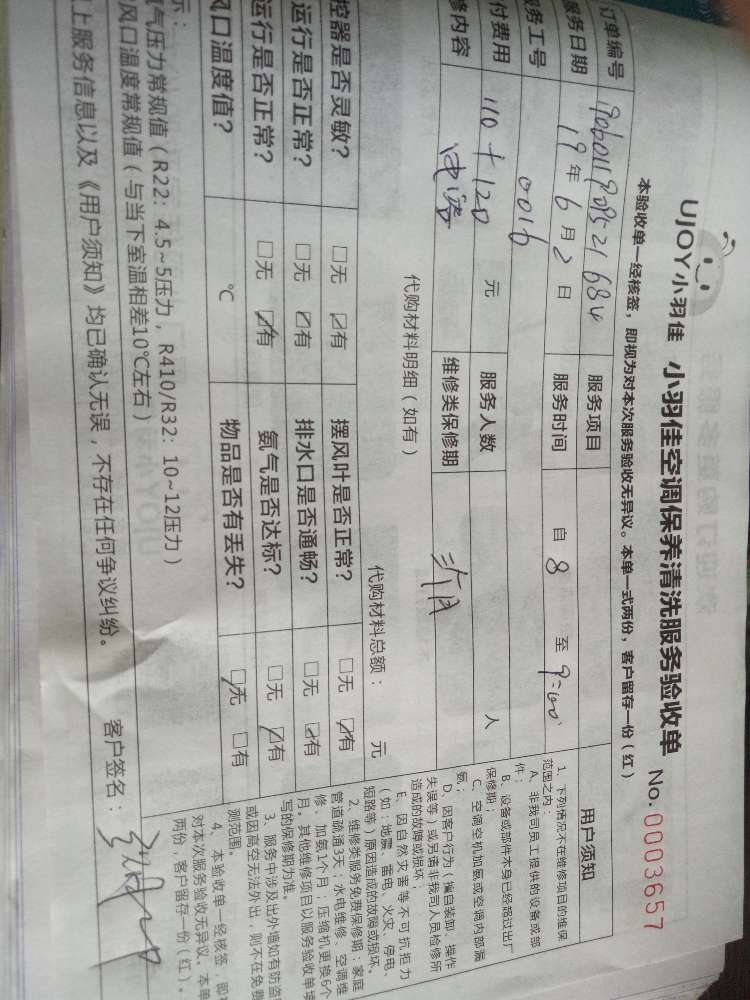 UJOY小羽佳 小羽佳空调保养清洗服务验收单 No. 0003657
本验收单一经核签，即视为对本次服务验收无异议。本单一式两份，客户留存一份（红）
订单编号 服务项目
服务日期 19年6月2日 服务时间 自 8 至 9:00
务工号 0016
付费用 110+120 元 服务人数 人
修内容 维修类保修期
代购材料明细（如有） 代购材料总额： 元
控器是否灵敏？ □无 ☑有 摆风叶是否正常？ □无 ☑有
运行是否正常？ □无 ☑有 排水口是否通畅？ □无 ☑有
运行是否正常？ □无 ☑有 氨气是否达标？ □无 ☑有
风口温度值？ ℃ 物品是否有丢失？ ☑无 □有
示：
气压力常规值（R22：4.5~5压力，R410/R32：10~12压力）
风口温度常规值（与当下室温相差10℃左右）
上服务信息以及《用户须知》均已确认无误，不存在任何争议纠纷。
客户签名：
用户须知
1、下列情况不在维修项目的维保
范围之内：
A、非我司员工提供的设备或部
件；
B、设备或部件本身已经超过出厂
保修期；
C、空调空机加氨或空调内部漏
氨；
D、因客户行为（擅自装卸、操作
失误等）或另请非我司人员检修所
造成的故障或损坏；
E、因自然灾害等不可抗拒力
（如：地震、雷电、火灾、停电、
短路等）原因造成的故障或损坏。
2、维修类服务免费保修期：家庭
管道疏通3天；水电维修、空调维
修、加氨1个月；压缩机更换6个
月。其他维修项目以服务验收单填
写的保修期为准。
3、服务中涉及出外墙如有防盗
或因高空无法外出，则不在免费
测范围。
4、本验收单一经核签，即
对本次服务验收无异议。本单
两份，客户留存一份（红）。